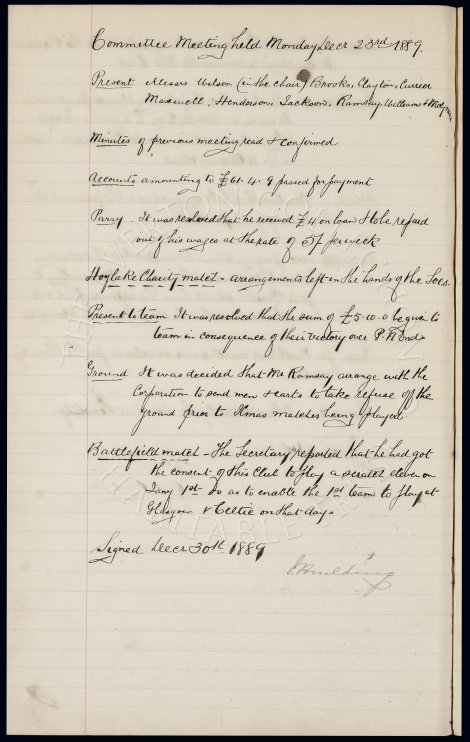 Committee Meeting held Monday Decr 23rd 1889.
Present Messrs Wilson (in the chair) Brooks, Clayton, Currier
Maxwell, Henderson, Jackson, Ramsay, Williams &
Minutes of previous meeting read & confirmed
Accounts amounting to £61.4.9 passed for payment
Parry. It was resolved that he received £4 on loan & to be repaid
out of his wages at the rate of 5/ per week
Hoylake Charity match - arrangements left in the hands of the Secs.
Present to team It was resolved that the sum of £5.10.0 be given to
team in consequence of their victory over P. N. End.
Ground It was decided that Mr Ramsay arrange with the
Corporation to send men & carts to take refuse off the
ground prior to Xmas matches being played
Battlefield match - The Secretary reported that he had got
the consent of this Club to play a scratch eleven on
Jany 1st so as to enable the 1st team to play at
Glasgow v Celtic on that day.
Signed Decr 30th 1889
J. Houlding